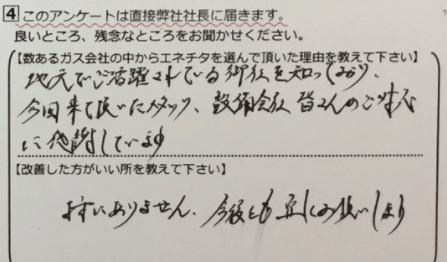 4 このアンケートは直接弊社社長に届きます。
良いところ、残念なところをお聞かせください。
【数あるガス会社の中からエネチタを選んで頂いた理由を教えて下さい】
地元でご活躍されている御社を知っており、
今回来て頂いたスタッフ、設備会社 皆さんのご対応
に感謝しています
【改善した方がいい所を教えて下さい】
特にありません。今後とも宜しくお願いします